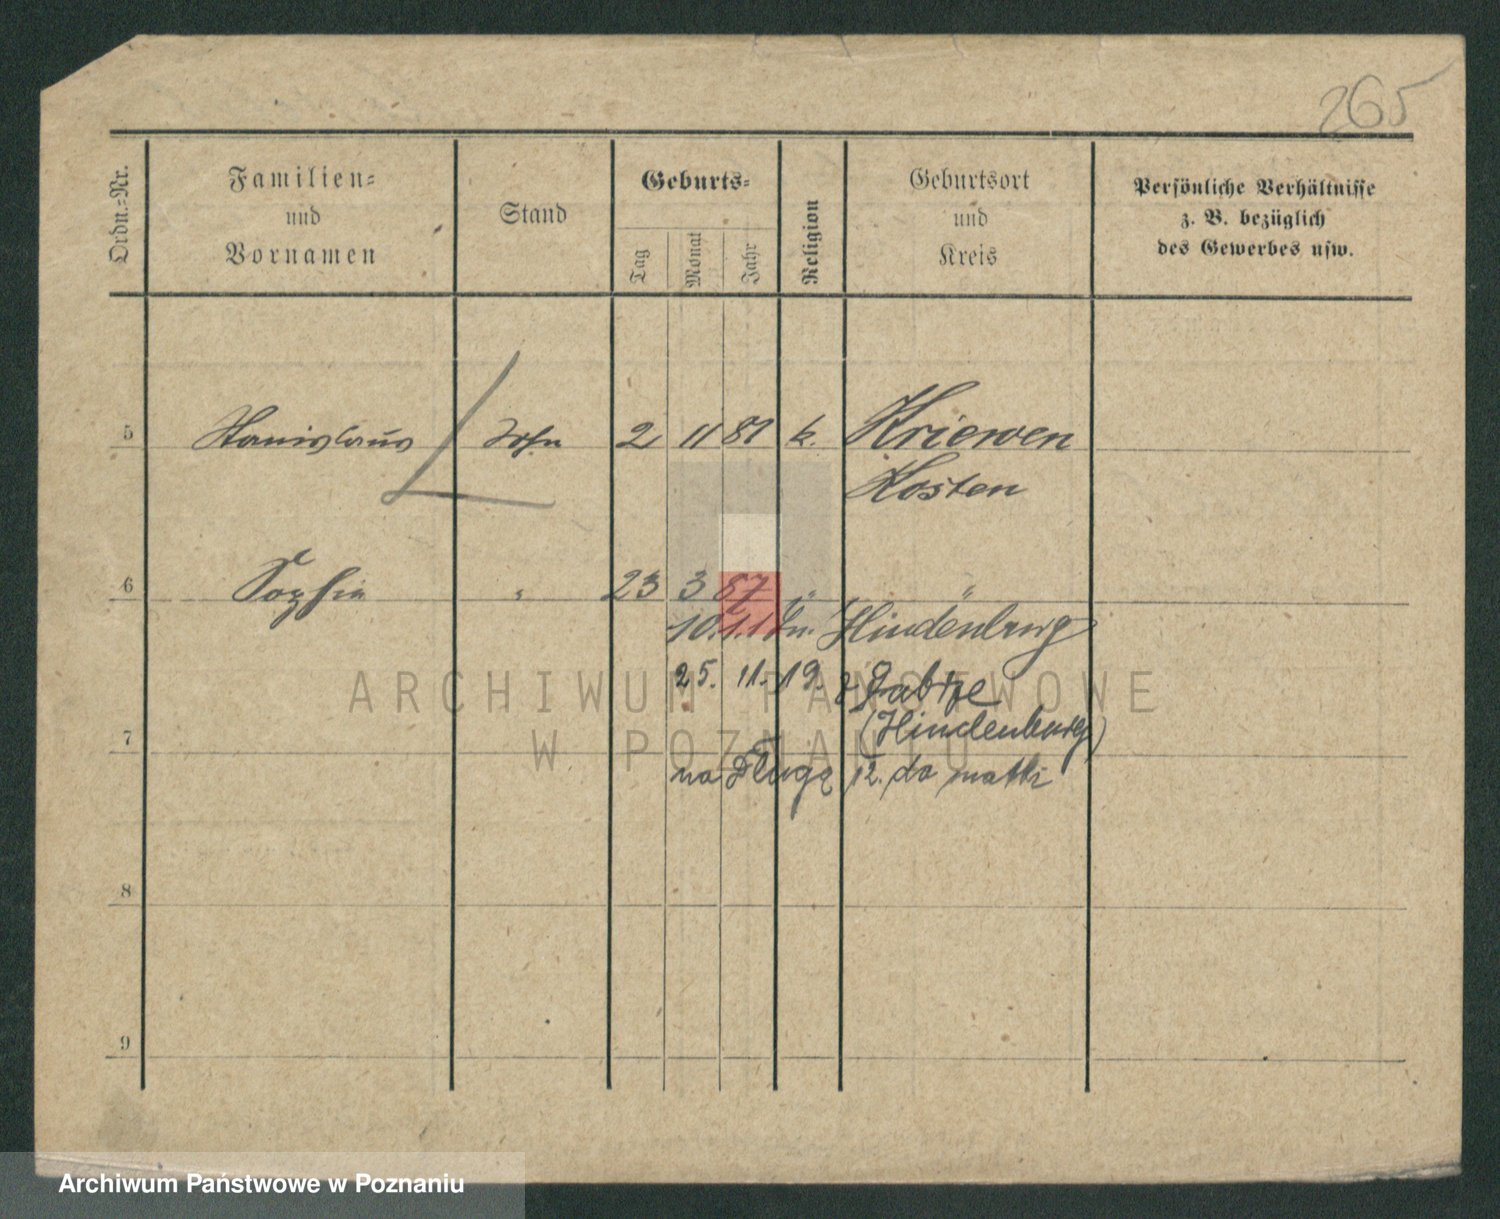 265
Ordn.-Nr.
Familien-
und
Vornamen
Stand
Geburts-
Tag
Monat
Jahr
Religion
Geburtsort
und
Kreis
Persönliche Verhältnisse
z. B. bezüglich
des Gewerbes usw.
5 Stanislaus Sohn 2 11 81 k. Kriewen
Kosten
6 Sophia " 23 3 87 " "
10.1.1 Hindenburg
25. 11. 19. Zabrze
(Hindenburg)
7
na Długą 12. do matki
8
9
ARCHIWUM PAŃSTWOWE
W POZNANIU
Archiwum Państwowe w Poznaniu